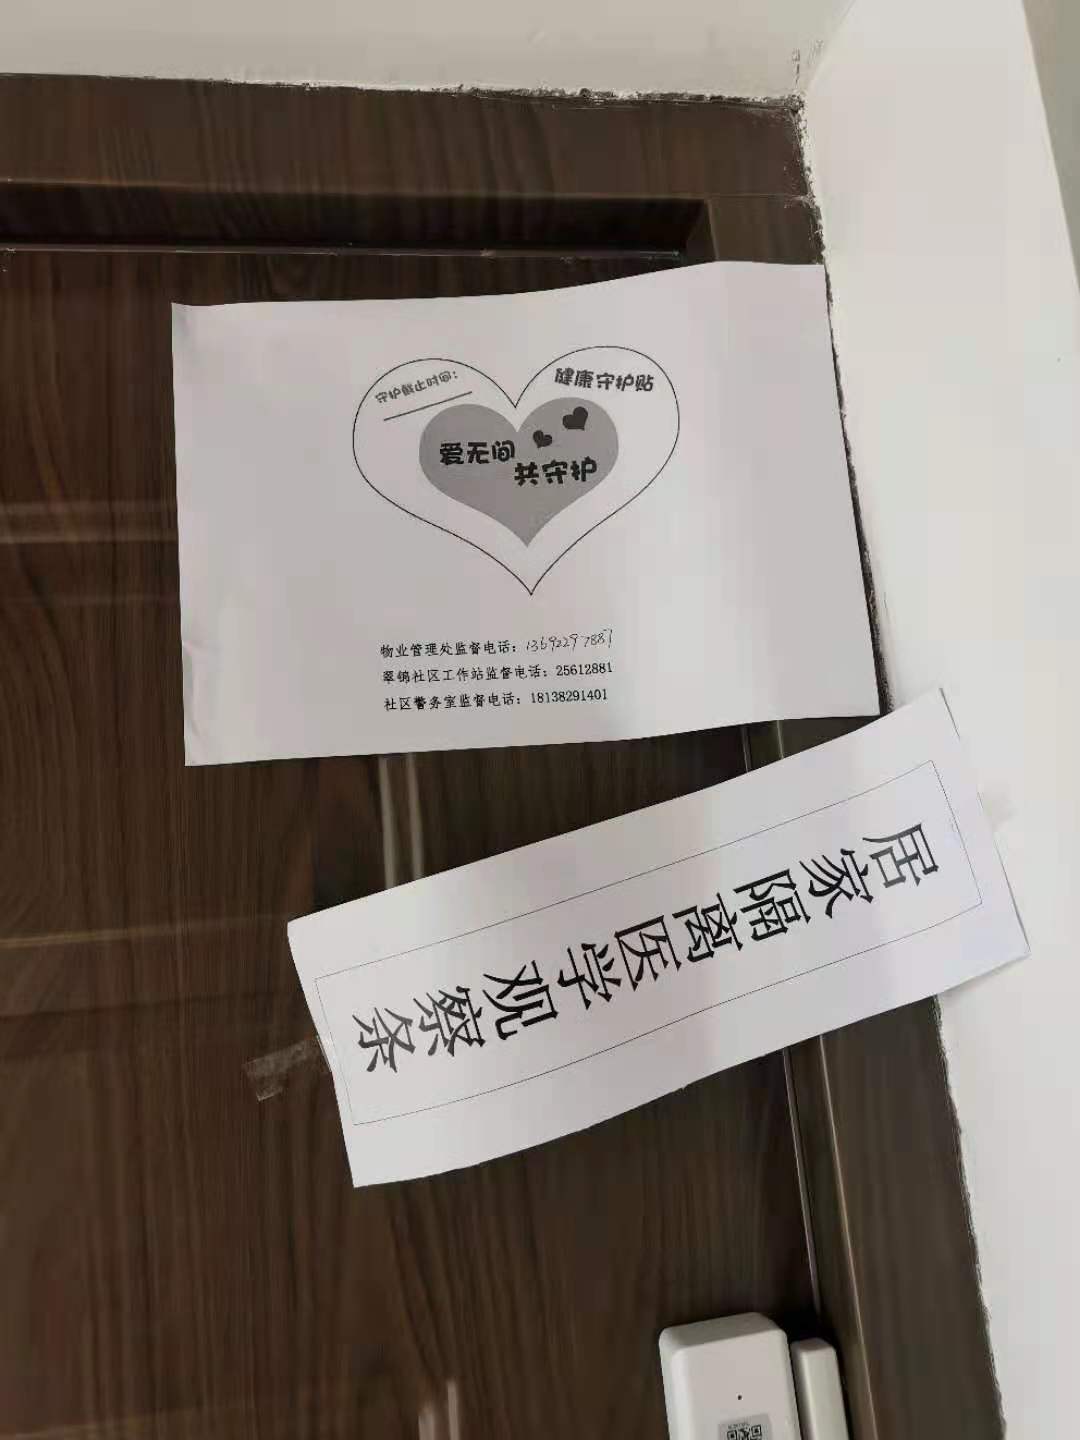 守护截止时间：
健康守护贴
爱无间
共守护
物业管理处监督电话：13692297887
翠锦社区工作站监督电话：25612881
社区警务室监督电话：18138291401
居家隔离医学观察条